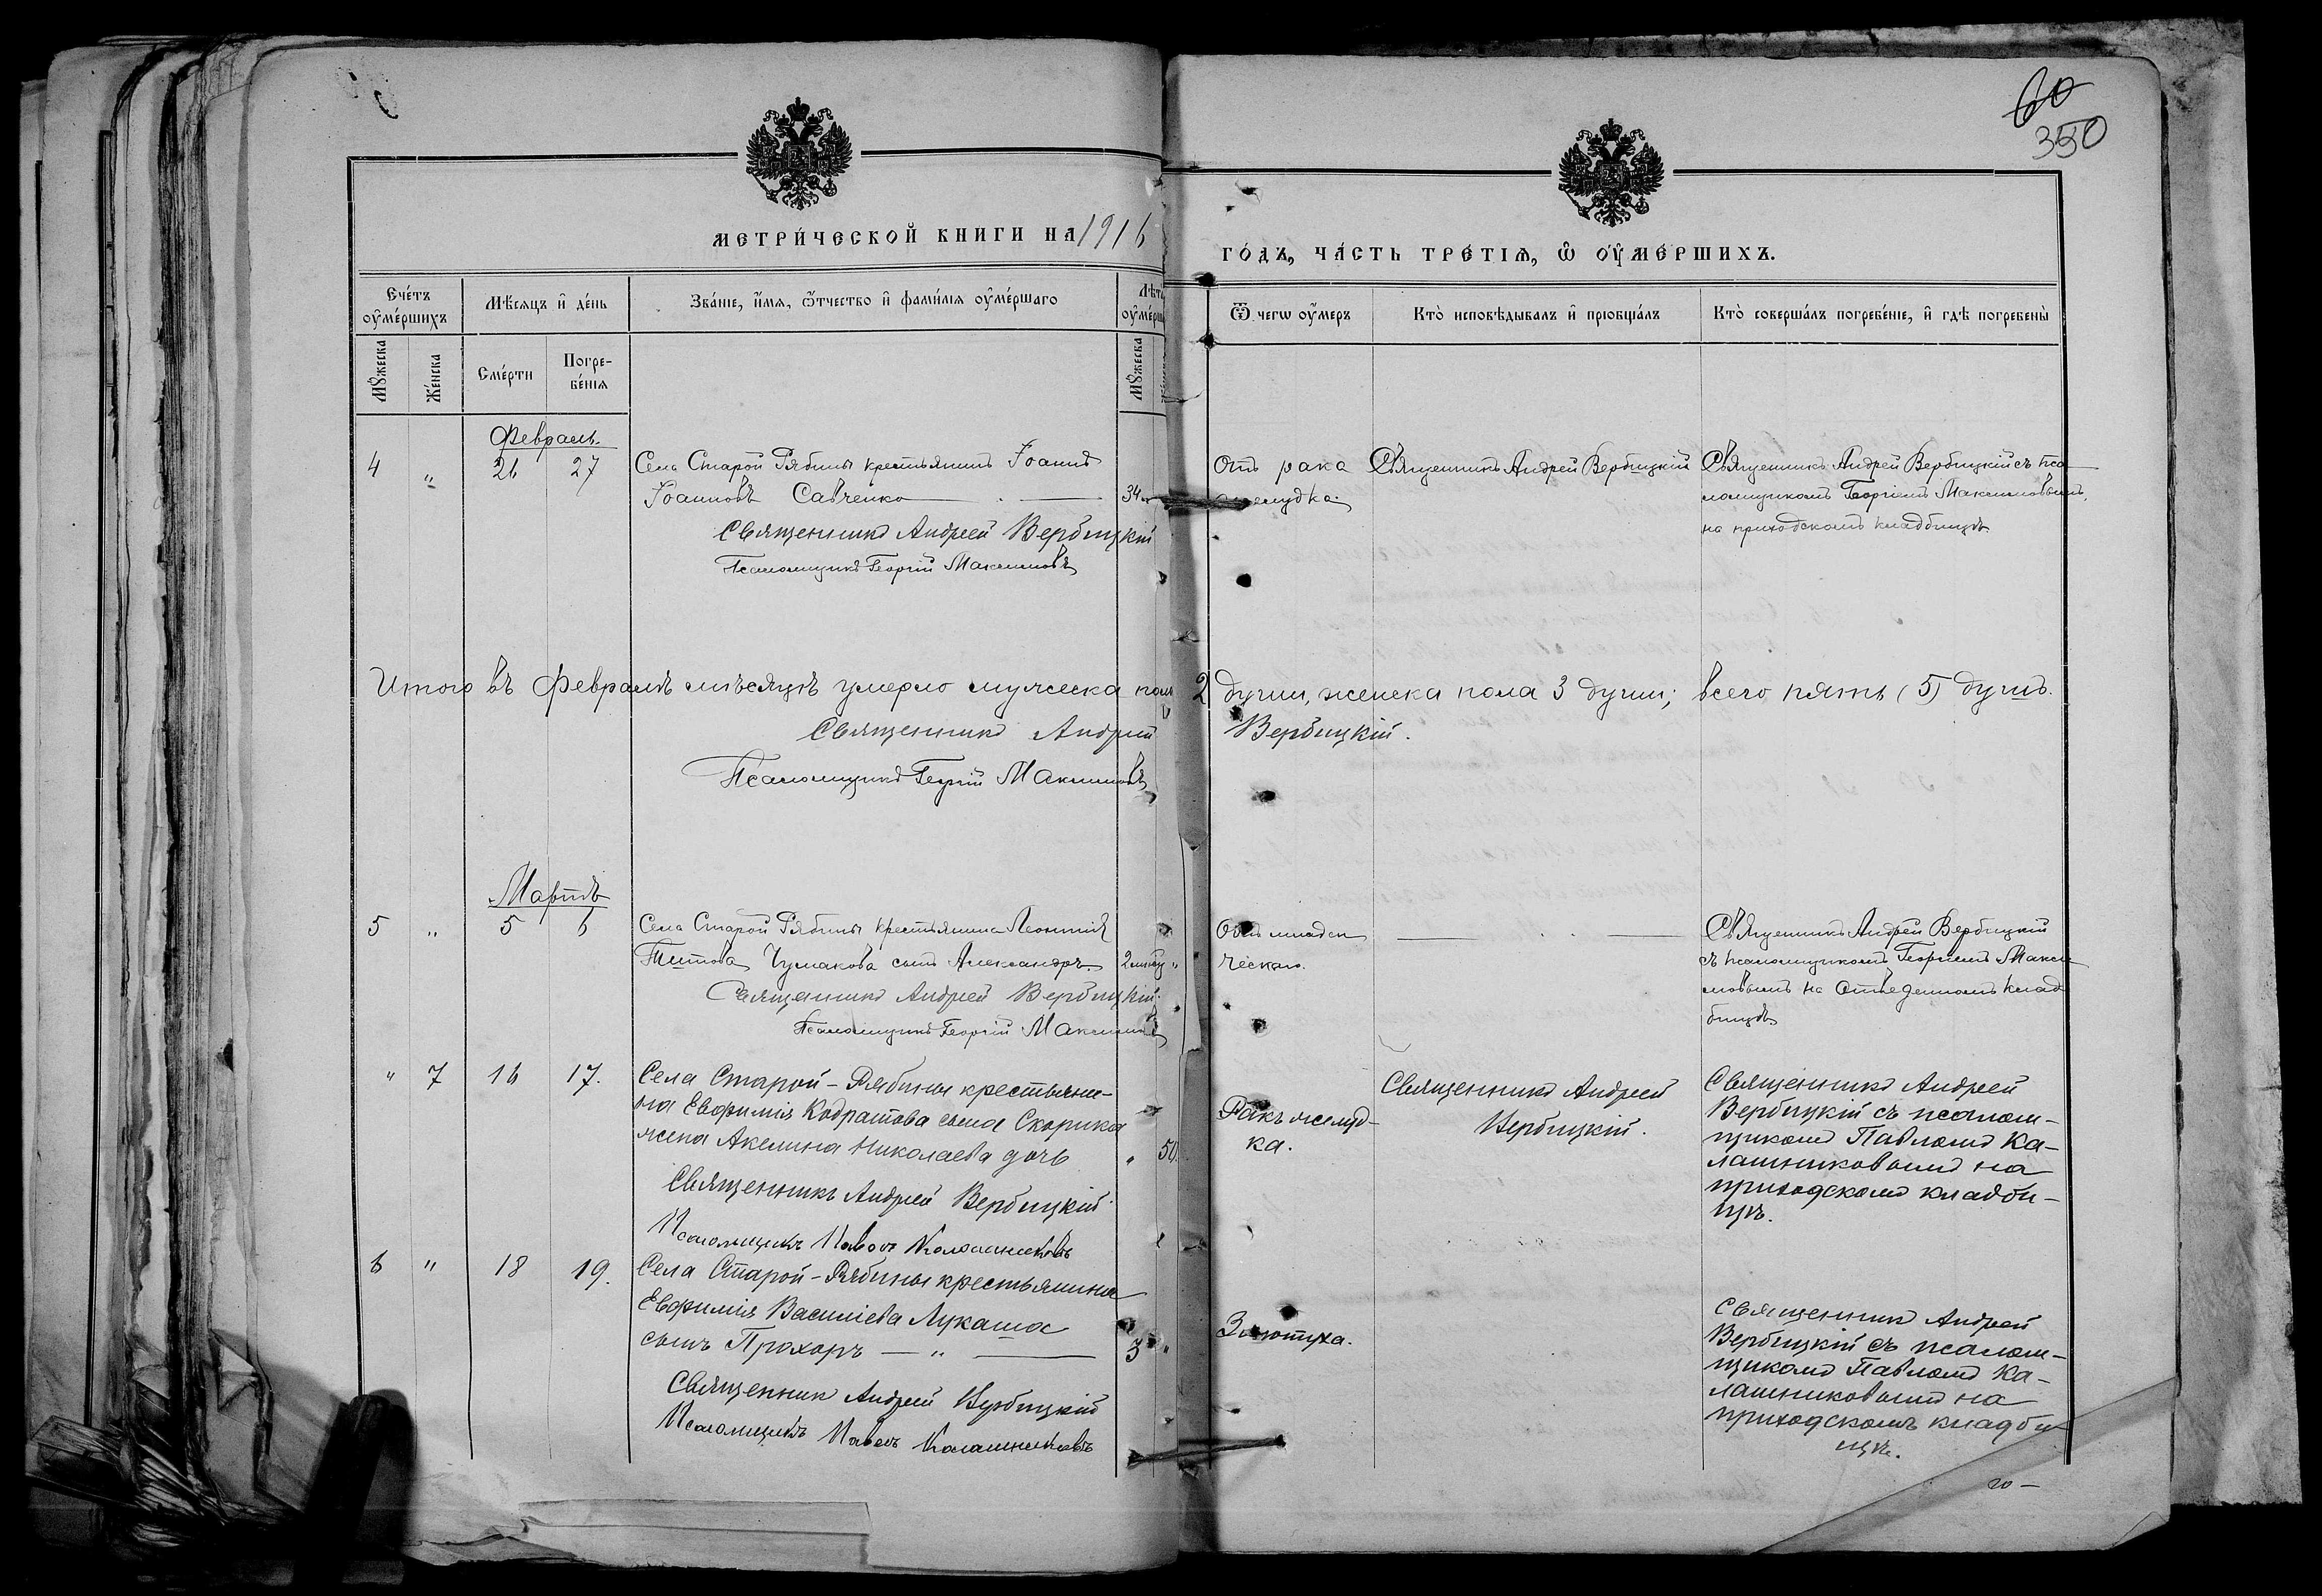 60
350
МЕТРИ́ЧЕСКОЙ КНИГИ НА 1916
ГО́ДЪ, ЧА́СТЬ ТРЕ́ТІѦ, Ѡ҆ ОУ҆МЕ́РШИХЪ.
Сче́тъ оу҆ме́ршихъ
Мѣ́сяцъ и҆ де́нь
Зва́ніе, и҆́мя, ѻ҆́тчество и҆ фами́лія оу҆ме́ршаго
Лѣта
Ѿ чегѡ оу҆́меръ
Кто̀ исповѣ́дывалъ и҆ пріобща́лъ
Кто̀ соверша́лъ погребе́ніе, и҆ гдѣ̀ погребены̀
Мꙋ́жеска
Же́нска
Сме́рти
Погре-
бе́нія
Мꙋ́жеска
Февраль
4 " 26 27 Села Старой Рябины крестьянинъ Іоаннъ
Іоанновъ Савченко 34
Священникъ Андрей Вербицкій
Псаломщикъ Георгій Максимовъ
Отъ рака
желудка.
Священникъ Андрей Вербицкій
Священникъ Андрей Вербицкій съ пса
ломщикомъ Георгіемъ Максимовымъ,
на приходскомъ кладбищѣ
Итого въ февралѣ мѣсяцѣ умерло мужеска пола 2 души, женска пола 3 души; всего пять (5) душъ.
Священникъ Андрей Вербицкій.
Псаломщикъ Георгій Максимовъ
Мартъ
5 " 5 6 Села Старой Рябины крестьянина Леонтія
Титова Чумакова сынъ Александръ. 2
Священникъ Андрей Вербицкій.
Псаломщикъ Георгій Максимовъ
младен
ческаго.
Священникъ Андрей Вербицкій
съ псаломщикомъ Георгіемъ Макси
мовымъ на отведенномъ клад
бищѣ
" 7 16 17. Села Старой-Рябины крестьяни-
на Евфимія Кодратова сына Скорика
жена Акилина Николаева дочь " 50.
Священникъ Андрей Вербицкій.
Псаломщикъ Павелъ Калашниковъ
Ракъ желуд-
ка.
Священникъ Андрей
Вербицкій.
Священникъ Андрей
Вербицкій съ псалом-
щикомъ Павломъ Ка-
лашниковымъ на
приходскомъ кладби-
щѣ.
6 " 18 19. Села Старой-Рябины крестьянина
Евфимія Василіева Лукаша
сынъ Прохоръ — " — 3 "
Священникъ Андрей Вербицкій
Псаломщикъ Павелъ Калашниковъ
Золотуха.
Священникъ Андрей
Вербицкій съ псалом-
щикомъ Павломъ Ка-
лашниковымъ на
приходскомъ кладби
щѣ.